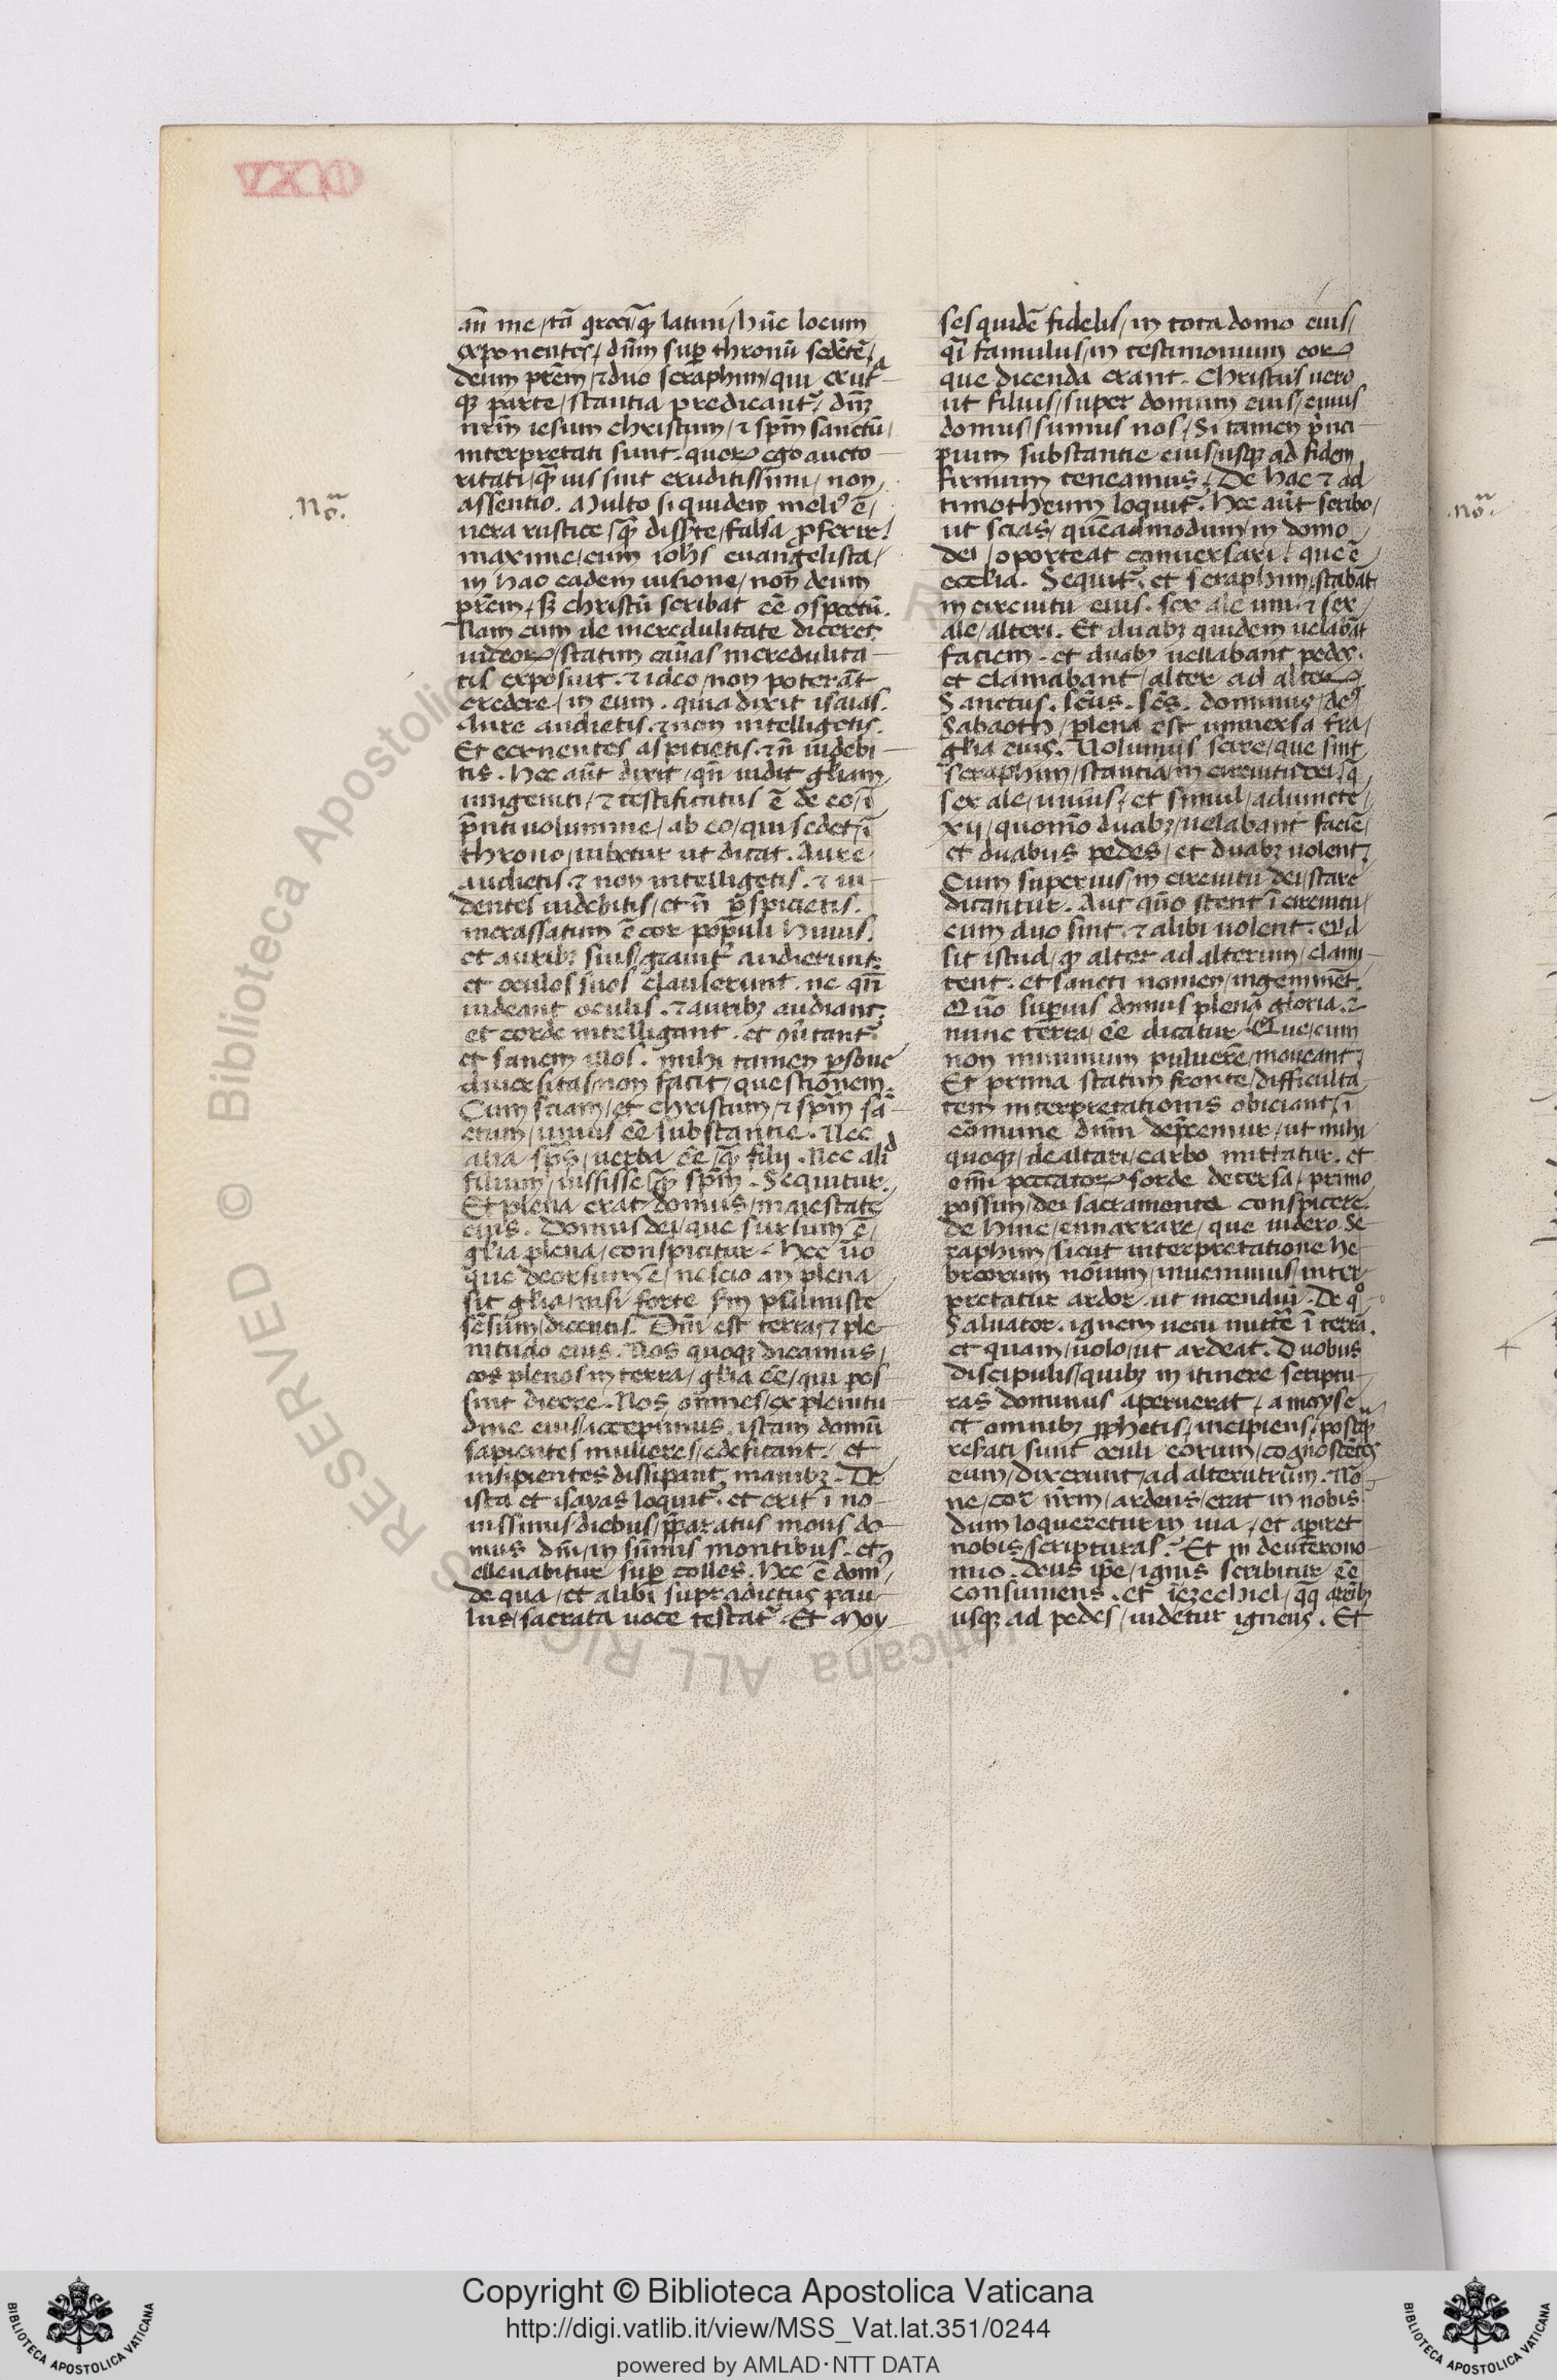 añ me / tā greci / ꝙ̃ latini / hūc locum
exponentes / dñm suꝑ thronū sedētē /
deum prēm / ⁊ duo seraphim / qui ex ut̃ᵃ
qꝫ parte / stantia predicant᷑ / dñꝫ
nrīm iesum christum / ⁊ spm̄ sanctū /
interpretati sunt. quoꝝ ego aucto
ritati / ꝙ̃uis sint eruditissimi / non
assentio. Multo si quidem meli⁹ ē /
uera rustice / ꝙ̃ diss̃te / falsa ꝓferre!
maxime / cum ioh̄s euangelista /
in hac eadem uisione / non deum
prēm / sꝫ christū scribat eē ꝯspectū.
Nam cum de incredulitate diceret
iudeoꝝ / statim cauſas incredulita
tis exposuit. ⁊ ideo / non poterāt
credere / in eum. quia dixit isaias.
Aure audietis. ⁊ non intelligetis.
Et cernentes aspicietis. ⁊ ñ uidebi
tis. hec aūt dixit / qñ uidit gl̃iam
unigeniti / ⁊ testificatus ē de eo / ī
p̄nti uolumine / ab eo / qui sedet / ī
throno / iubetur ut dicat. Aure
audietis. ⁊ non intelligetis. ⁊ ui
dentes uidebitis / et ñ ꝑspicietis.
incrassatum ē cor populi huius.
et auribꝫ suis / grauit̃ audierunt.
et oculos suos clauserunt. ne qñ
uideant oculis. ⁊ auribꝫ audiant.
et corde intelligant. et ꝯũtant᷑
et sanem illos. mihi tamen ꝑsone
diuersitas / non facit / questionem.
Cum sciam / et christum / ⁊ spm̄ sā
ctum / unius eē substantie. Nec
alia sp̄s / uerba eē / ꝙ̃ filij. Nec aliᵈ
filium / iussisse / ꝙ̃ spm̄. Sequitur.
Et plena erat / domus / maiestate
eius. Domus dei / que sursum ē /
gl̃ia plena / conspicitur. hec ũo
que deorsum ē / nescio an plena
sit gl̃ia / nisi forte scḿ psalmiste
sēsum / dicentis. Dñi est terra / ⁊ ple
nitudo eius. Nos quoqꝫ dicamus /
eos plenos in terra / gl̃ia eē / qui pos
sint dicere. Nos om̃nes / ex plenitu
dine eius / accepimus. istam domū
sapientes mulieres / edeficant. et
insipientes dissipant manibꝫ. De
ista et isayas loquit᷑. et erit ī no
uissimis diebus / p̄paratus mons do
mus dñi / in sum̄is montibus. et
elleuabitur suꝑ colles. hec ē dom⁹ /
de qua / et alibi supradictus pau
lus / sacrata uoce testat᷑. Et Moy
ses quidē fidelis / in tota domo eius /
qī famulus / in testimonium eoꝝ
que dicenda erant. Christus uero
ut filius / super domum eius / cuius
domus / sumus nos / Si tamen p̄nci
pium substantie eius / usqꝫ ad fidem
firmum teneamus. De hac ⁊ ad
timotheum loquit᷑. hec aūt scribo /
ut scias / quēadmodum / in domo
dei / oporteat conuersari / que ē
ecclia. Sequit᷑. et seraphim / stabāt
in circuitu eius. sex ale uni. ⁊ sex
ale / alteri. Et duabꝫ quidem uelabāt
faciem. et duabꝫ uellabant pedes.
et clamabant / alter ad alteꝝ.
Sanctus. scūs. scs̄. dominus / de⁹
Sabaoth / plena est uniuersa t̃ra /
gl̃ia eius. Nolumus scire / que sint
seraphim / stantia in circuitu dei / q̄
sex ale / unius / et simul / adiuncte /
xij / quomō duabꝫ / uelabant faciē /
et duabus pedes / et duabꝫ uolent.
Cum superius / in circuitu dei / stare
dicantur. Aut quō stent ī circuitu /
cum duo sint. ⁊ alibi uolent. Qd
sit istud / ꝙ alter ad alterum / clami
tent. et sancti nomen / ingeminēt.
Quō suꝑius domus plena gloria. ⁊
nunc terra / eē dicatur. Que / cum
non minimum puluerē / moueant.
Et prima statim fronte / difficulta
tem interpretationis obiciant / ī
cōmune dñm dep̄cemur / ut mihi
quoqꝫ / de altari / carbo mittatur. et
omī peccatoꝝ sorde detersa / primo
possim / dei sacramenta conspicere.
de hinc / ennarrare / que uidero. Se
raphim / sicut interpretatione he
breorum nōinum / inuenimus / inter
pretatur ardor. ut incendiū. De qᵒ
Saluator. ignem ueni mitt̃e ī terra.
et quam / uolo / ut ardeat. Duobus
discipulis / quibꝫ in itinere scriptu
ras dominus aperuerat / a moyse
et omnibꝫ ꝓphetis / incipiens / postqꝫ
resati sunt oculi eorum / cognoscētes
eum / dixerunt / ad alterutrum. Nō
ne / cor nr̄m / ardens / erat in nobis
dum loqueretur in uia / et apiret
nobis / scripturas? Et in deuterono
mio. deus ip̄e / ignis scribitur eē
consumens. et iezechiel / q̄q̄ a renibꝫ
usqꝫ ad pedes / uidetur igneus. Et
.nō.
.nō.
© Biblioteca Apostolica Vaticana ALL RIGHTS RESERVED
BIBLIOTECA APOSTOLICA VATICANA
Copyright © Biblioteca Apostolica Vaticana
http://digi.vatlib.it/view/MSS_Vat.lat.351/0244
powered by AMLAD·NTT DATA
BIBLIOTECA APOSTOLICA VATICANA